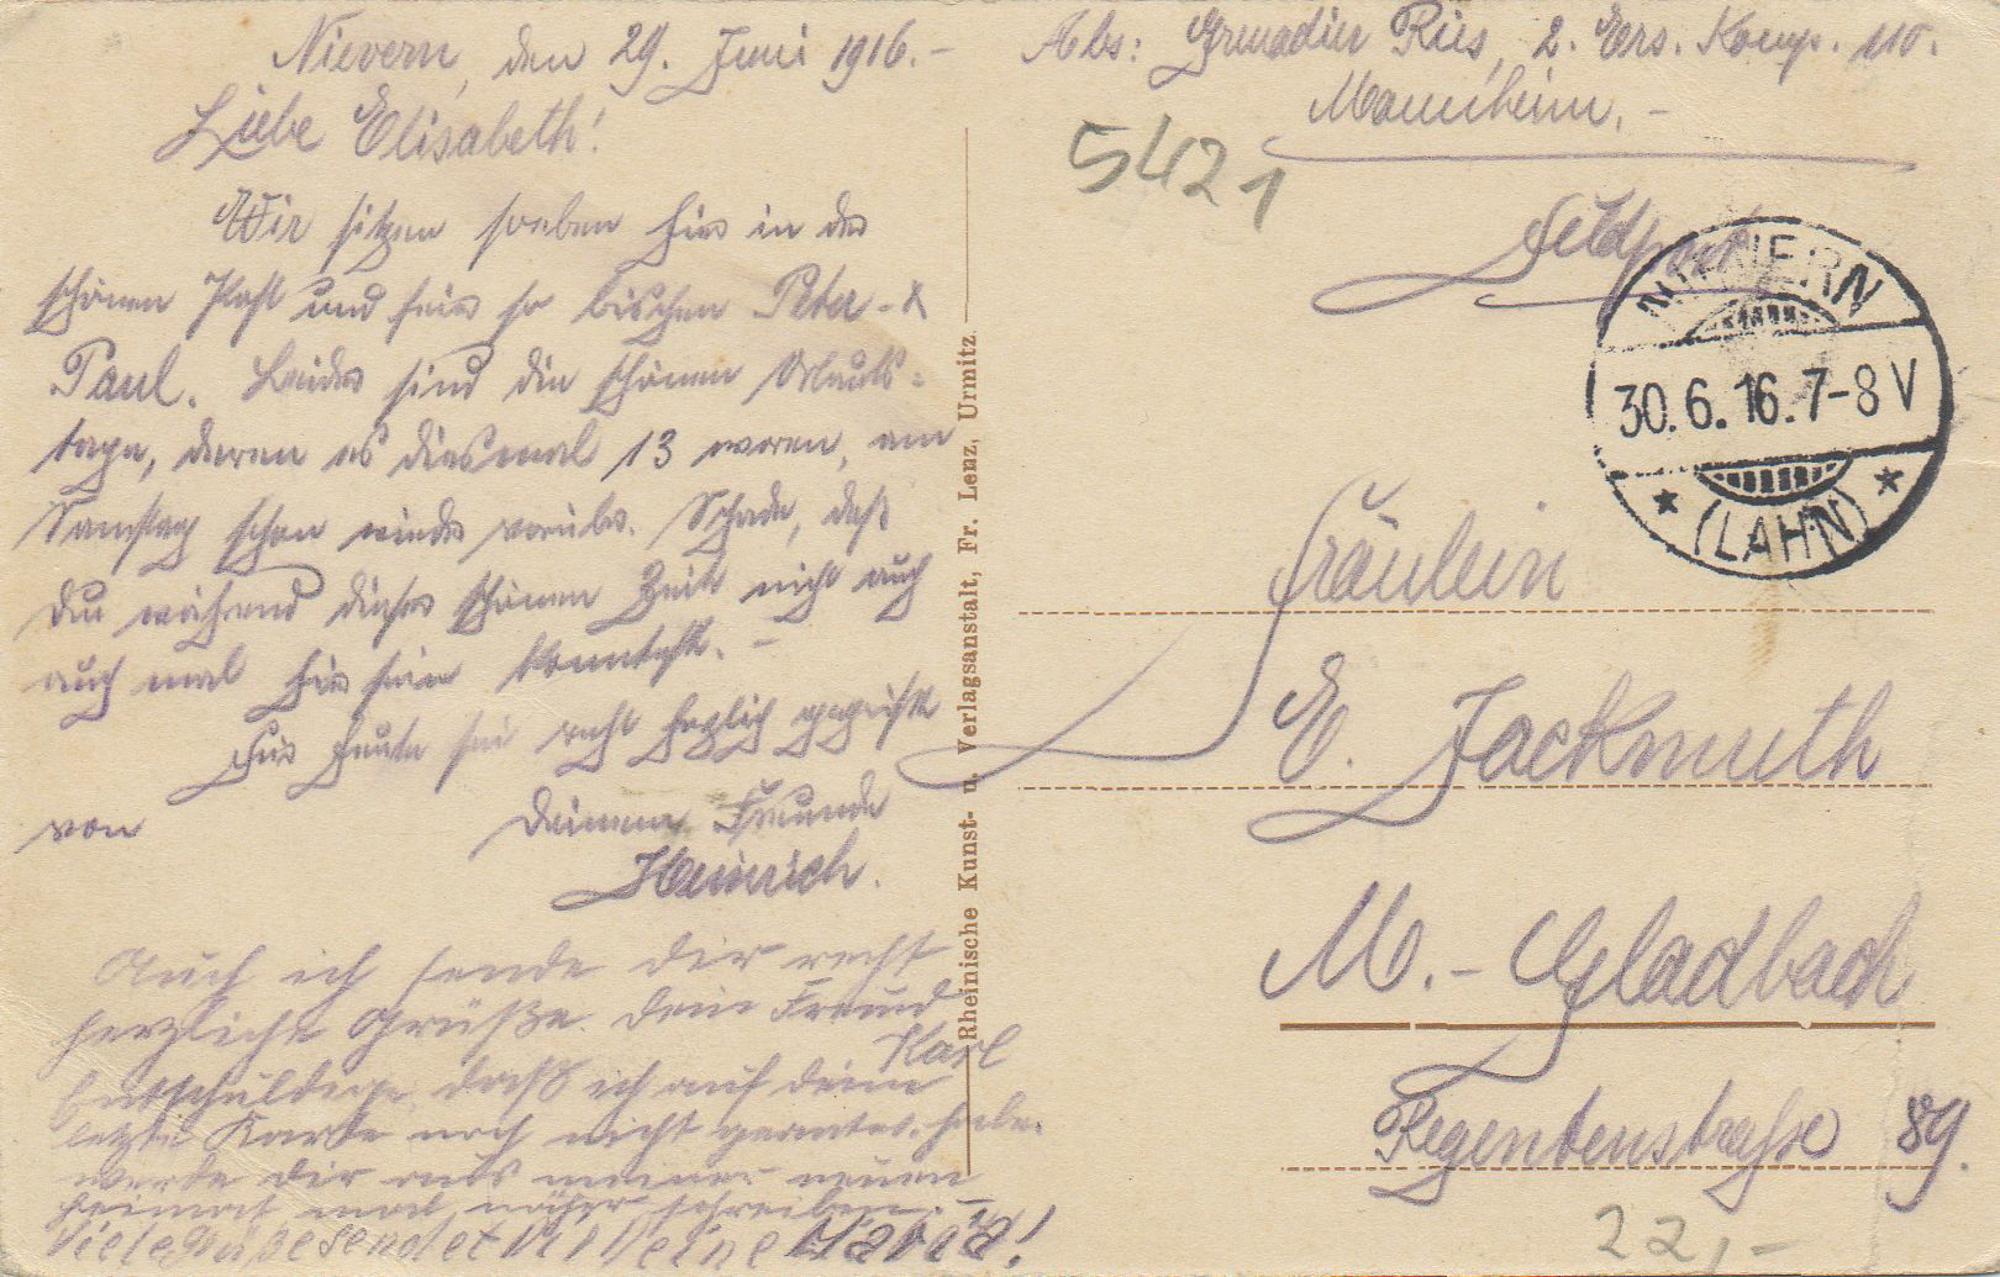 Nievern, den 29. Juni 1916.-
Liebe Elisabeth!
Wir sitzen soeben hier in der
schönen Post und feiern so bischen Peter-&
Paul. Leider sind die schönen Urlaubs=
tage, deren es diesmal 13 waren, am
Samstag schon wieder vorüber. Schade, daß
Du während dieser schönen Zeit nicht auch
auch mal hier sein konntest.-
Für heute sei recht herzlich gegrüßt
von Deinem Freunde
Heinrich.
Auch ich sende dir recht
herzliche Grüße. Dein Freund
Karl
Entschuldige, daß ich auf deine
letzte Karte noch nicht geantw. habe.
werde dir aus meiner neuen
Heimat mal näher schreiben.-
Viele Grüße sendet Dir Deine Maria!
Rheinische Kunst- u. Verlagsanstalt, Fr. Lenz, Urmitz
Abs: Grenadier Ries, 2. Ers. Komp. 110.
Mannheim.-
5421
Feldpost
NIEVERN
30.6.16.7-8V
* (LAHN) *
Fräulein
E. Jackmuth
M.-Gladbach
Regentenstraße 89.
22,-